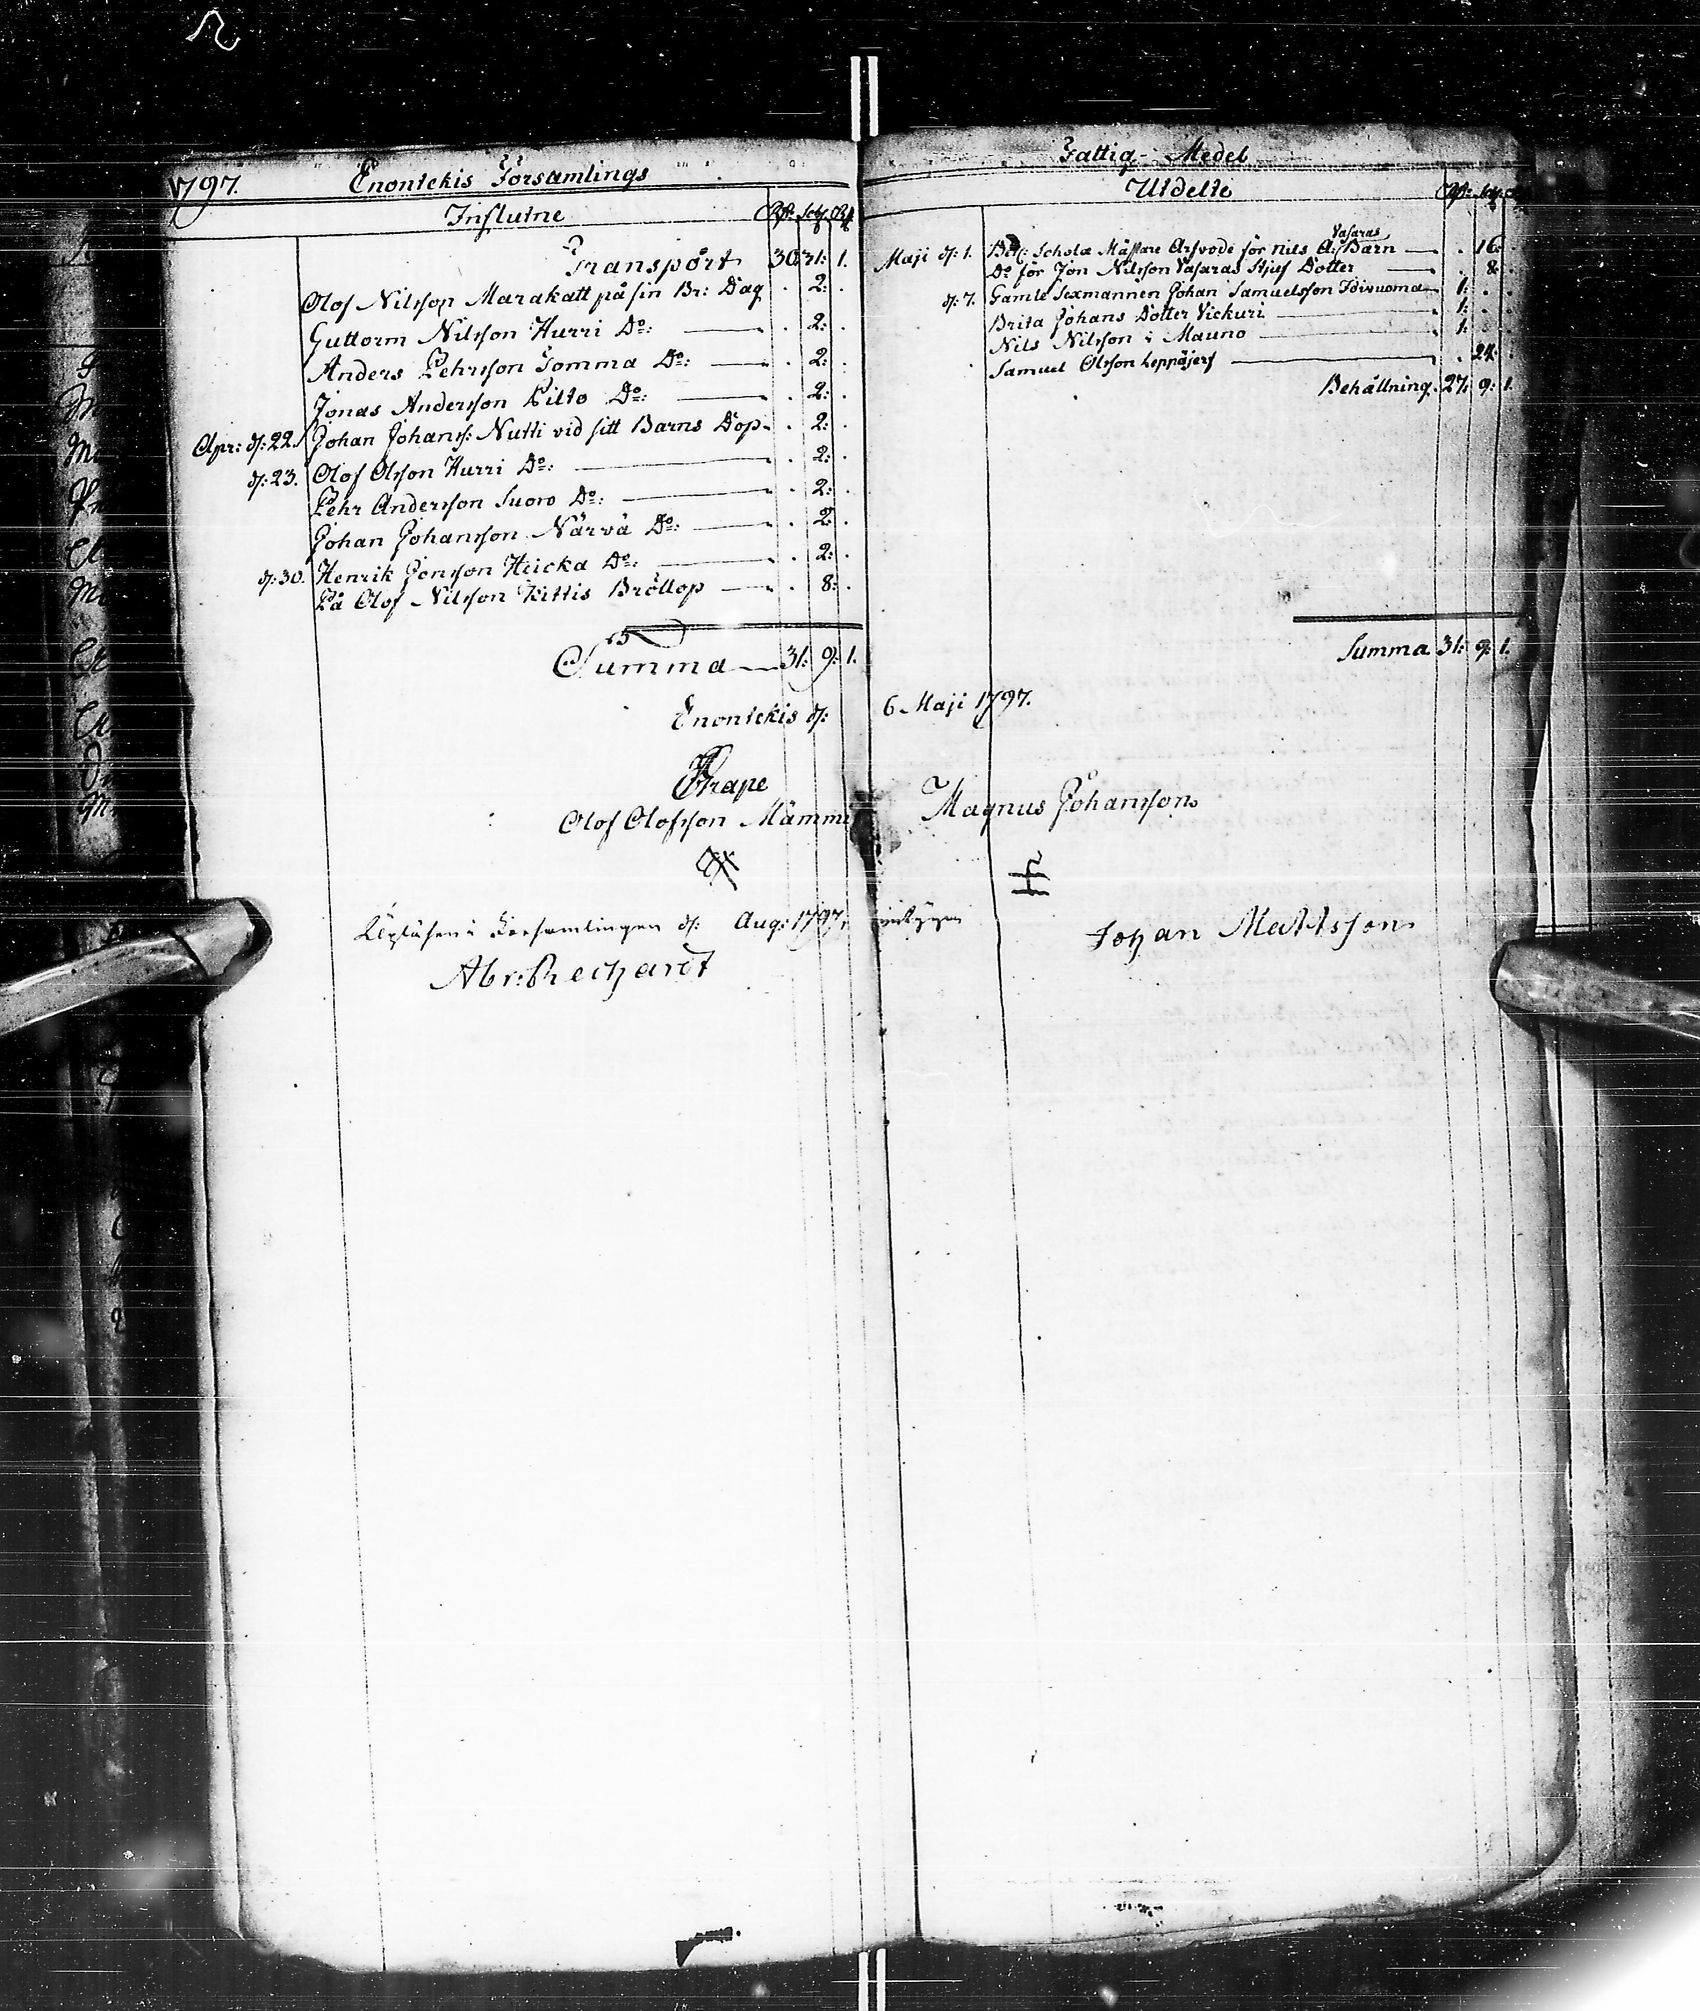 1797. Enontekis Församlings
Influtne Rdr. Sch. Rst.
Transport 30: 31: 1.
Olof Nilsson Marakatt på sin Br: Dag . 2: .
Guttorm Nilsson Hurri Do: . 2: .
Anders Pehrsson Somma Do: . 2: .
Jonas Andersson Pilto Do: . 2: .
Apr: d: 22. Johan Johans: Nutti vid sitt Barns Dop . 2: .
d: 23. Olof Olsson Hurri Do: . 2: .
Pehr Andersson Suoro Do: . 2: .
Johan Johansson Närvä Do: . 2: .
d: 30. Henrik Jonsson Hucka Do: . 2: .
På Olof Nilsson Kittis Bröllop . 8: .
Summa 31: 9: 1.
Enontekis d:
Grape
Olof Olofsson Mämmi
Upläsen i Församlingen d: Aug: 1797,
Abr: Rechardt
Fattig-Medel
Utdelte Rdr. Sch. Rst.
Vasaras
Maji d: 1. Schola Mästare Arfvode för Nils A: Barn . 16: .
Do för Jon Nilsson Vasaras Stjuf Dotter . 8: .
d: 7. Gamle Sexmannen Johan Samuelsson Idivuoma 1: . .
Brita Johans Dotter Vickuri 1: . .
Nils Nilsson i Mauno 1: . .
Samuel Olsson Leppäjerf . 24: .
Behållning 27: 9: 1.
Summa 31: 9: 1.
6 Maji 1797.
Magnus Johansson
Johan Mattsson